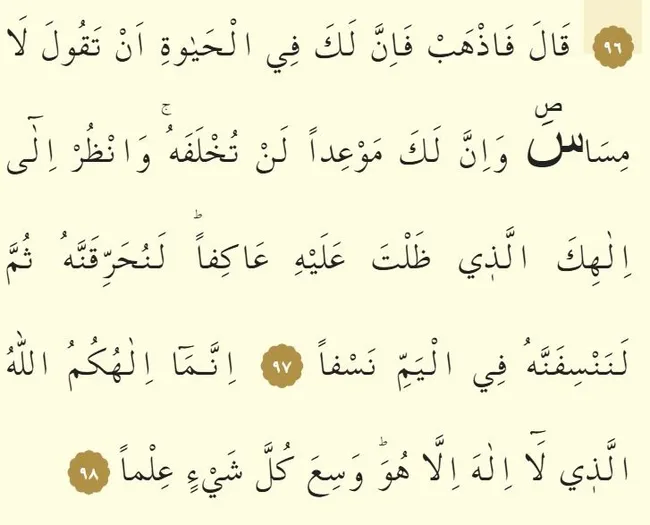 ٩٦ قَالَ فَاذْهَبْ فَاِنَّ لَكَ فِي الْحَيٰوةِ اَنْ تَقُولَ لَا
مِسَاسَۖ وَاِنَّ لَكَ مَوْعِداً لَنْ تُخْلَفَهُۚ وَانْظُرْ اِلٰٓى
اِلٰهِكَ الَّذ۪ي ظَلْتَ عَلَيْهِ عَاكِفاًۜ لَنُحَرِّقَنَّهُ ثُمَّ
لَنَنْسِفَنَّهُ فِي الْيَمِّ نَسْفاً ٩٧ اِنَّـمَٓا اِلٰهُكُمُ اللّٰهُ
الَّذ۪ي لَٓا اِلٰهَ اِلَّا هُوَۜ وَسِعَ كُلَّ شَيْءٍ عِلْماً ٩٨